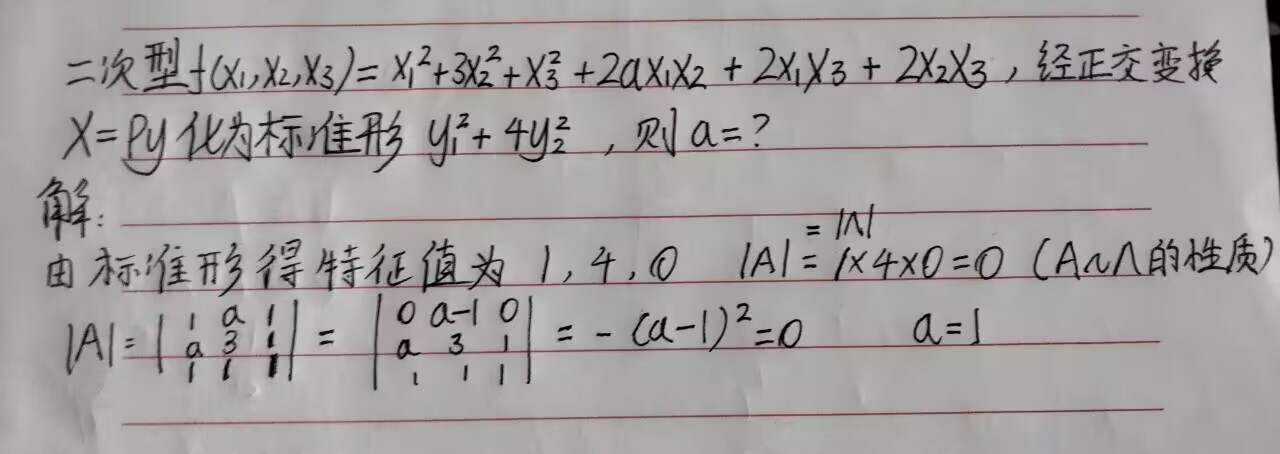 二次型f(x₁,x₂,x₃)= x₁²+3x₂²+x₃²+2ax₁x₂ + 2x₁x₃ + 2x₂x₃ , 经正交变换
X=Py 化为标准形 y₁²+4y₂² , 则 a=?
解:
由标准形得特征值为 1, 4, 0 |A| = 1×4×0=0 (A∽Λ的性质)
= |Λ|
|A|= | 1 a 1 | = | 0 a-1 0 | = -(a-1)²=0 a=1
| a 3 1 | | a 3 1 |
| 1 1 1 | | 1 1 1 |